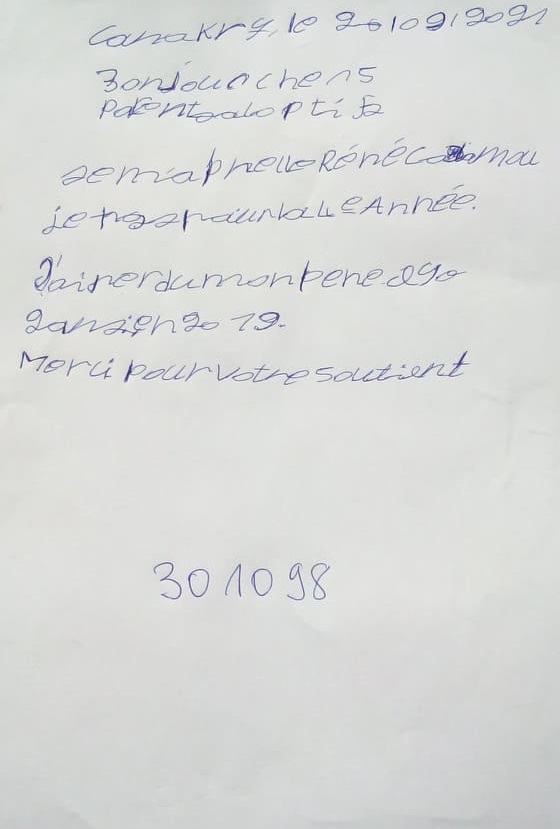 Conakry, le 20/09/2021
Bonjour chers
Parents adoptifs
Je m'aphelle Réné Camou
je pass pour la 4e Année.
J'ai perdu mon pene
en 2019.
Merci pour votre soutient
301098